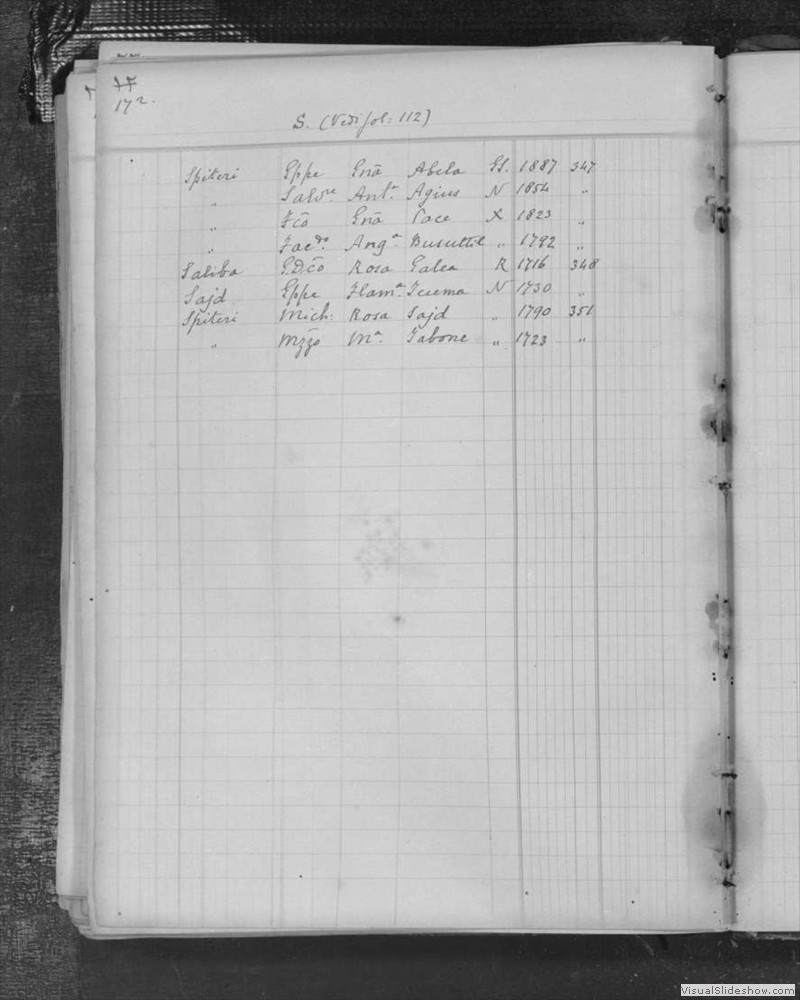 172.
S. (Vedi fol: 112)
Spiteri Gppe Gnā Abela GS. 1887 347
„ Salvre Anta Agius N 1854 „
„ Fcō Gnā Pace X 1823 „
„ Facdo Anga Busuttil „ 1792 „
Saliba G.D.cō Rosa Galea R 1716 348
Sajd Gppe Flama Teuma N 1730 „
Spiteri Mich: Rosa Sajd „ 1790 351
„ Mzzō Ma Tabone „ 1723 „
VisualSlideshow.com